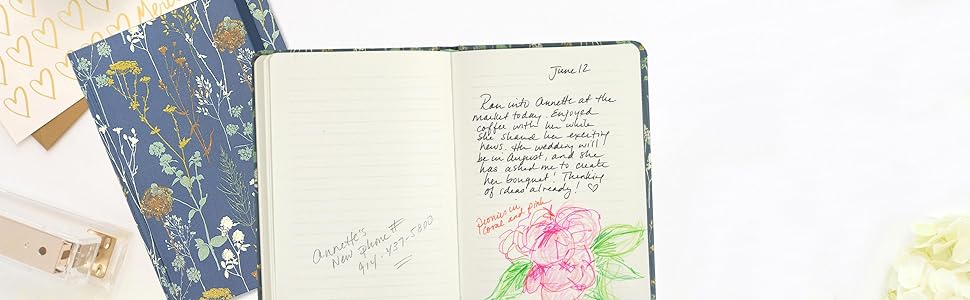 Merci
Annette's
New Phone #
914-437-5800
June 12
Ran into Annette at the
market today. Enjoyed
coffee with her while
she shared her exciting
news. Her wedding will
be in August, and she
has asked me to create
her bouquet! Thinking
of ideas already! ♡
Peonies in
coral and pink